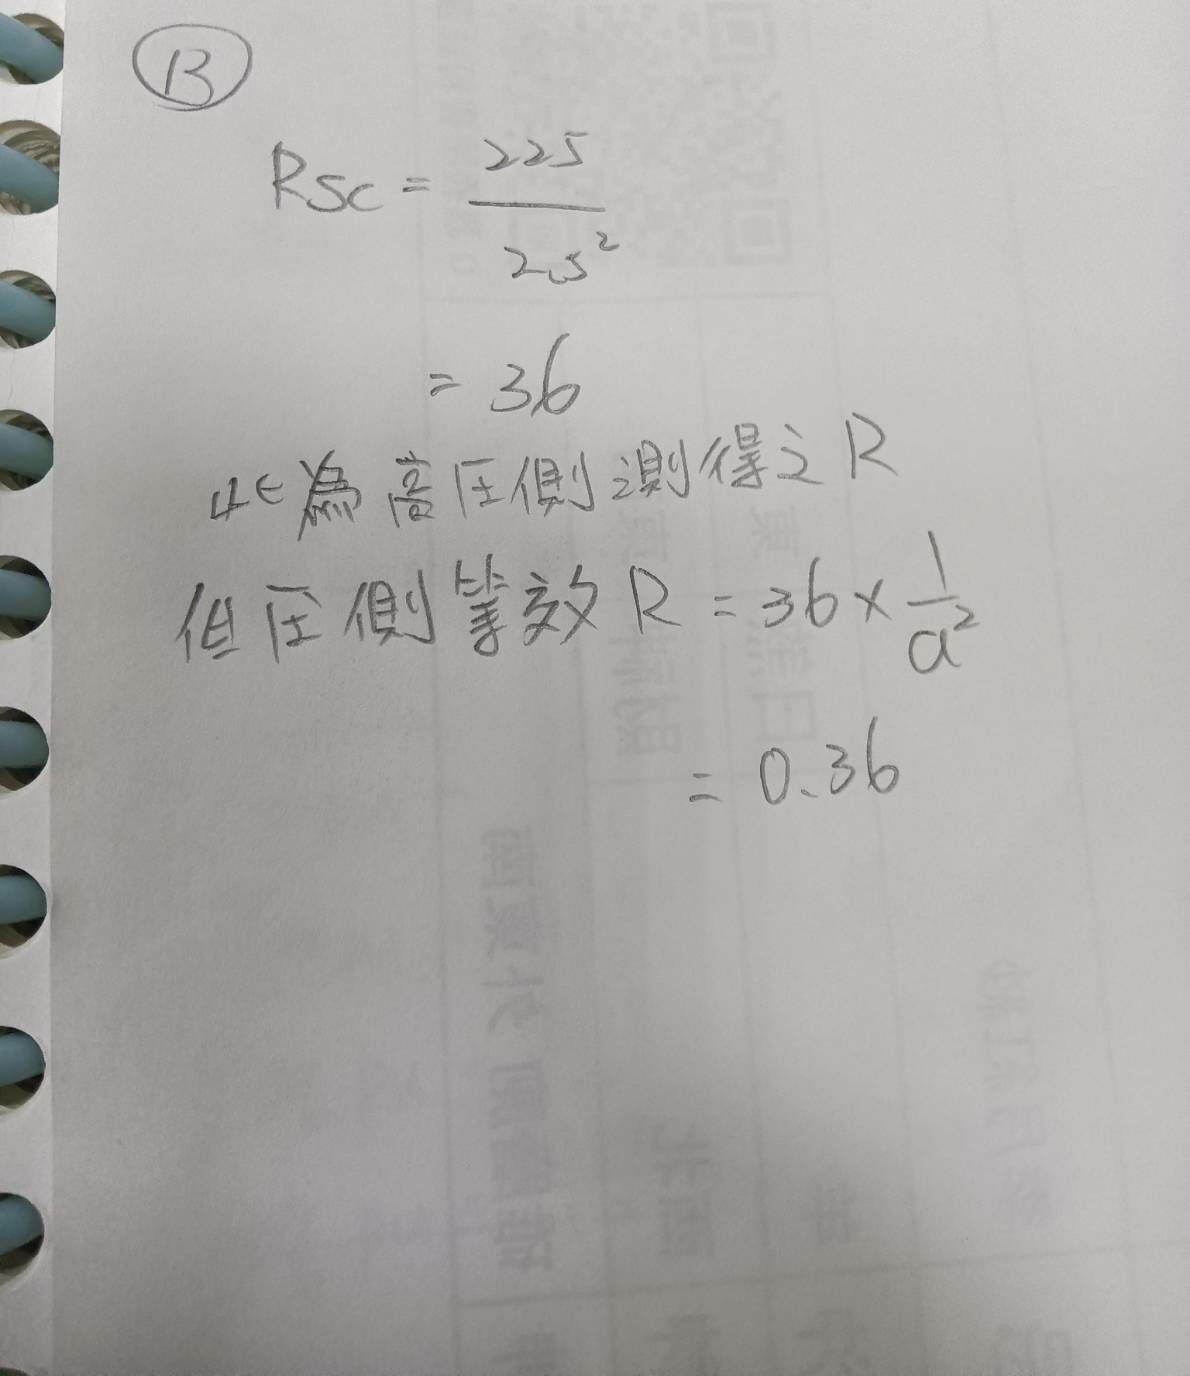 B
Rsc = 225 / 2.5²
= 36
此為高压側測得之R
但压側等效R = 36 × 1/a²
= 0.36